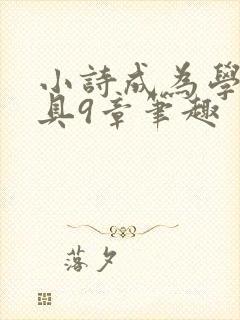 小詩成為學
具9章筆趣
落夕